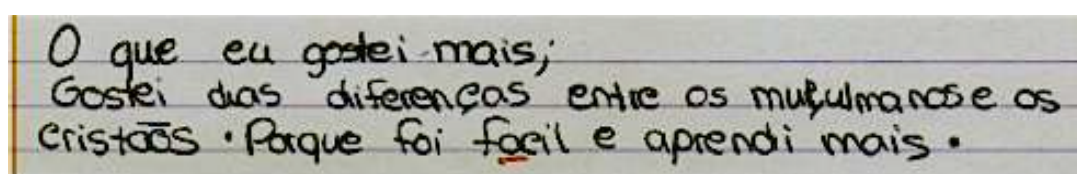 O que eu gostei mais;
Gostei das diferenças entre os muçulmanos e os
cristãos. Porque foi facil e aprendi mais.